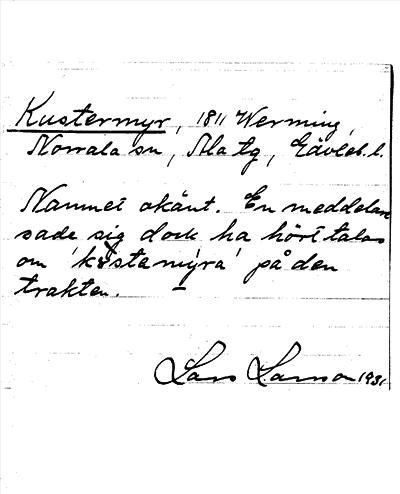 Kustermyr, 1811 Werming,
Norrala sn, Ala tg, Gävleb. l.
Namnet okänt. En meddelare
sade sig dock ha hört talas
om 'kustamýra' på den
trakten. –
Lars Larsson 1931